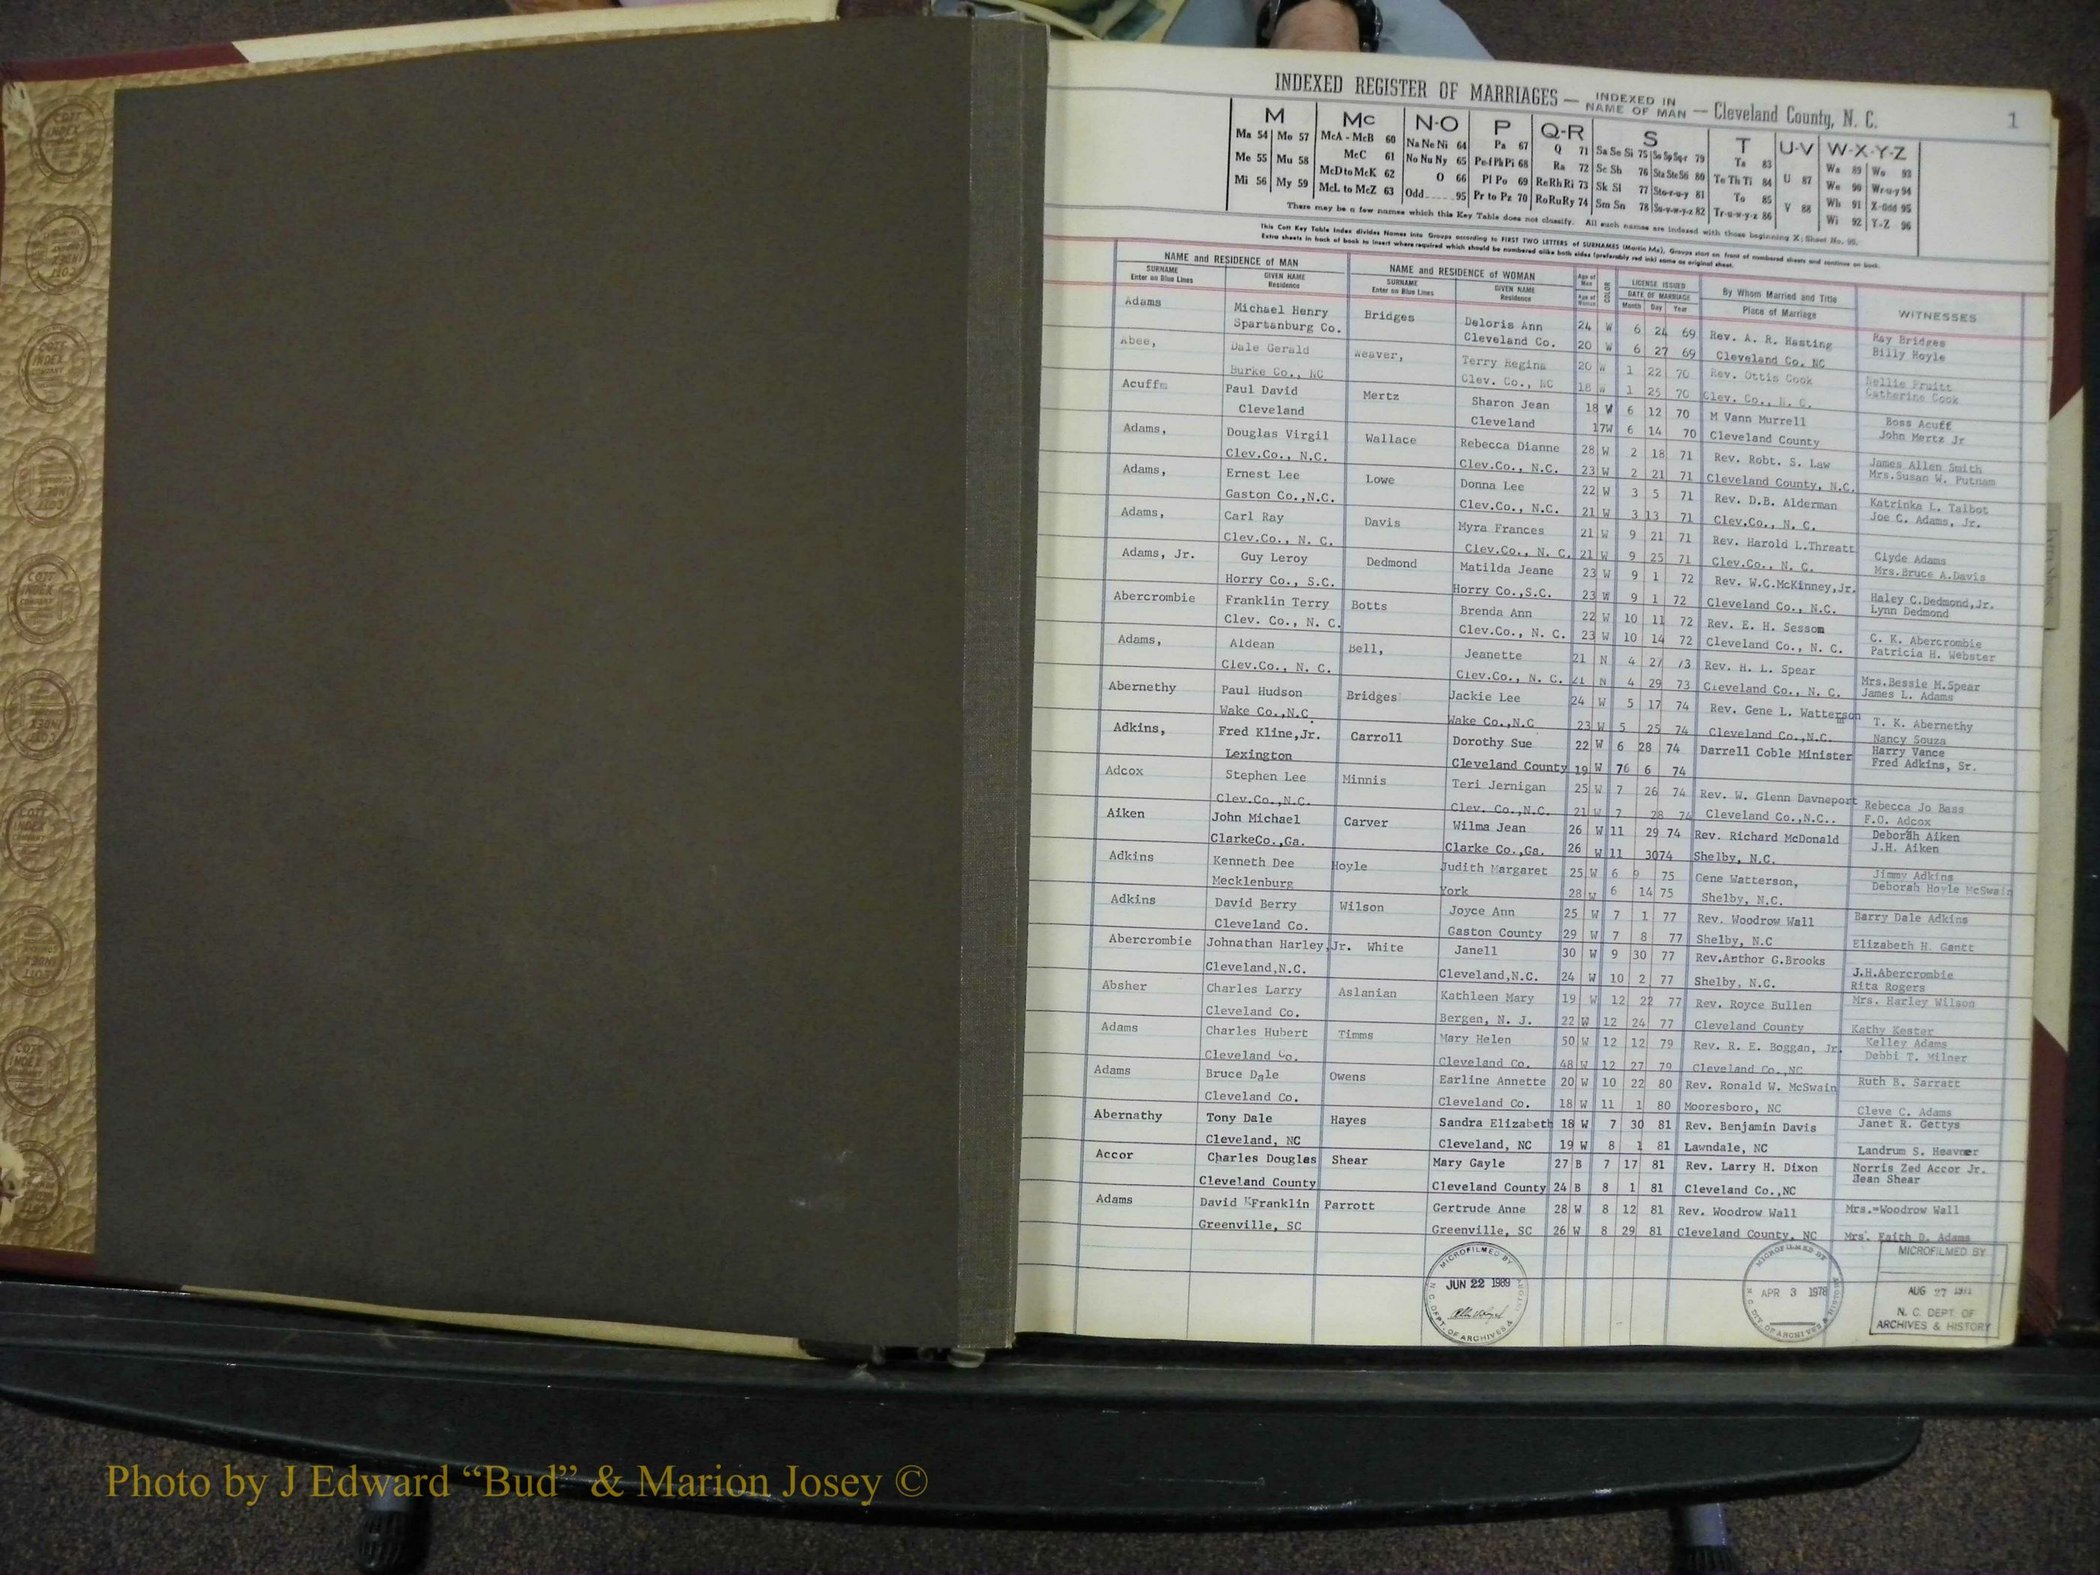 INDEXED REGISTER OF MARRIAGES — INDEXED IN NAME OF MAN — Cleveland County, N. C. 1
M Mc N-O P Q-R S T U-V W-X-Y-Z
Ma 54 Mo 57 McA - McB 60 Na Ne Ni 64 Pa 67 Q 71 Sa Se Si 75 So Sp Sq-r 79 Ta 83 Wa 89 Wo 93
Me 55 Mu 58 McC 61 No Nu Ny 65 Pe-f Ph Pi 68 Ra 72 Sc Sh 76 Sta Ste Sti 80 Te Th Ti 84 U 87 We 90 Wr-u-y 94
Mi 56 My 59 McD to McK 62 O 66 Pl Po 69 Re Rh Ri 73 Sk Sl 77 Sto-r-u-y 81 To 85 Wh 91 X-Odd 95
McL to McZ 63 Odd 95 Pr to Pz 70 Ro Ru Ry 74 Sm Sn 78 Su-v-w-y-z 82 Tr-u-w-y-z 86 V 88 Wi 92 Y-Z 96
There may be a few names which this Key Table does not classify. All such names are indexed with those beginning X; Sheet No. 95.
This Cott Key Table Index divides Names into Groups according to FIRST TWO LETTERS of SURNAMES (Martin Ma), Groups start on front of numbered sheets and continue on back.
Extra sheets in back of book to insert where required which should be numbered alike both sides (preferably red ink) same as original sheet.
NAME and RESIDENCE of MAN NAME and RESIDENCE of WOMAN Age of Man COLOR LICENSE ISSUED By Whom Married and Title WITNESSES
SURNAME GIVEN NAME SURNAME GIVEN NAME Age of Woman DATE OF MARRIAGE Place of Marriage
Enter on Blue Lines Residence Enter on Blue Lines Residence Month Day Year
Adams Michael Henry Bridges Deloris Ann 24 W 6 24 69 Rev. A. R. Hasting Ray Bridges
Spartanburg Co. Cleveland Co. 20 W 6 27 69 Cleveland Co. NC Billy Hoyle
Abee, Dale Gerald Weaver, Terry Regina 20 W 1 22 70 Rev. Ottis Cook Nellie Pruitt
Burke Co., NC Clev. Co., NC 18 W 1 25 70 Clev. Co., N. C. Catherine Cook
Acuff Paul David Mertz Sharon Jean 18 W 6 12 70 M Vann Murrell Boss Acuff
Cleveland Cleveland 17W 6 14 70 Cleveland County John Mertz Jr
Adams, Douglas Virgil Wallace Rebecca Dianne 28 W 2 18 71 Rev. Robt. S. Law James Allen Smith
Clev.Co., N.C. Clev.Co., N.C. 23 W 2 21 71 Cleveland County, N.C. Mrs.Susan W. Putnam
Adams, Ernest Lee Lowe Donna Lee 22 W 3 5 71 Rev. D.B. Alderman Katrinka L. Talbot
Gaston Co.,N.C. Clev.Co., N.C. 21 W 3 13 71 Clev.Co., N. C. Joe C. Adams, Jr.
Adams, Carl Ray Davis Myra Frances 21 W 9 21 71 Rev. Harold L.Threatt Clyde Adams
Clev.Co., N. C. Clev.Co., N. C. 21 W 9 25 71 Clev.Co., N. C. Mrs.Bruce A.Davis
Adams, Jr. Guy Leroy Dedmond Matilda Jeane 23 W 9 1 72 Rev. W.C.McKinney,Jr. Haley C.Dedmond,Jr.
Horry Co., S.C. Horry Co.,S.C. 23 W 9 1 72 Cleveland Co., N.C. Lynn Dedmond
Abercrombie Franklin Terry Botts Brenda Ann 22 W 10 11 72 Rev. E. H. Sessom C. K. Abercrombie
Clev. Co., N. C. Clev.Co., N. C. 23 W 10 14 72 Cleveland Co., N. C. Patricia H. Webster
Adams, Aldean Bell, Jeanette 21 N 4 27 73 Rev. H. L. Spear Mrs.Bessie M.Spear
Clev.Co., N. C. Clev.Co., N. C. 21 N 4 29 73 Cleveland Co., N. C. James L. Adams
Abernethy Paul Hudson Bridges Jackie Lee 24 W 5 17 74 Rev. Gene L. Watterson T. K. Abernethy
Wake Co.,N.C. Wake Co.,N.C 23 W 5 25 74 Cleveland Co.,N.C. Nancy Souza
Adkins, Fred Kline,Jr. Carroll Dorothy Sue 22 W 6 28 74 Darrell Coble Minister Harry Vance
Lexington Cleveland County 19 W 76 6 74 Fred Adkins, Sr.
Adcox Stephen Lee Minnis Teri Jernigan 25 W 7 26 74 Rev. W. Glenn Davneport Rebecca Jo Bass
Clev.Co.,N.C. Clev. Co.,N.C. 21 W 7 28 74 Cleveland Co.,N.C.. F.O. Adcox
Aiken John Michael Carver Wilma Jean 26 W 11 29 74 Rev. Richard McDonald Deborah Aiken
ClarkeCo.,Ga. Clarke Co.,Ga. 26 W 11 3074 Shelby, N.C. J.H. Aiken
Adkins Kenneth Dee Hoyle Judith Margaret 25 W 6 9 75 Gene Watterson, Jimmy Adkins
Mecklenburg York 28 W 6 14 75 Shelby, N.C. Deborah Hoyle McSwain
Adkins David Berry Wilson Joyce Ann 25 W 7 1 77 Rev. Woodrow Wall Barry Dale Adkins
Cleveland Co. Gaston County 29 W 7 8 77 Shelby, N.C Elizabeth H. Gantt
Abercrombie Johnathan Harley,Jr. White Janell 30 W 9 30 77 Rev.Anthor G.Brooks J.H.Abercrombie
Cleveland,N.C. Cleveland,N.C. 24 W 10 2 77 Shelby, N.C. Rita Rogers
Absher Charles Larry Aslanian Kathleen Mary 19 W 12 22 77 Rev. Royce Bullen Mrs. Harley Wilson
Cleveland Co. Bergen, N. J. 22 W 12 24 77 Cleveland County Kathy Kester
Adams Charles Hubert Timms Mary Helen 50 W 12 12 79 Rev. R. E. Boggan, Jr. Kelley Adams
Cleveland Co. Cleveland Co. 48 W 12 27 79 Cleveland Co.,NC Debbi T. Milner
Adams Bruce Dale Owens Earline Annette 20 W 10 22 80 Rev. Ronald W. McSwain Ruth B. Sarratt
Cleveland Co. Cleveland Co. 18 W 11 1 80 Mooresboro, NC Cleve C. Adams
Abernathy Tony Dale Hayes Sandra Elizabeth 18 W 7 30 81 Rev. Benjamin Davis Janet R. Gettys
Cleveland, NC Cleveland, NC 19 W 8 1 81 Lawndale, NC Landrum S. Heavner
Accor Charles Douglas Shear Mary Gayle 27 B 7 17 81 Rev. Larry H. Dixon Norris Zed Accor Jr.
Cleveland County Cleveland County 24 B 8 1 81 Cleveland Co.,NC Dean Shear
Adams David Franklin Parrott Gertrude Anne 28 W 8 12 81 Rev. Woodrow Wall Mrs. Woodrow Wall
Greenville, SC Greenville, SC 26 W 8 29 81 Cleveland County, NC Mrs. Faith D. Adams
MICROFILMED BY JUN 22 1989 N. C. DEPT. OF ARCHIVES &
MICROFILMED BY APR 3 1978 N. C. DEPT. OF ARCHIVES & HISTORY
MICROFILMED BY
AUG 27
N. C. DEPT. OF
ARCHIVES & HISTORY
COTT INDEX COMPANY
Photo by J Edward “Bud” & Marion Josey ©